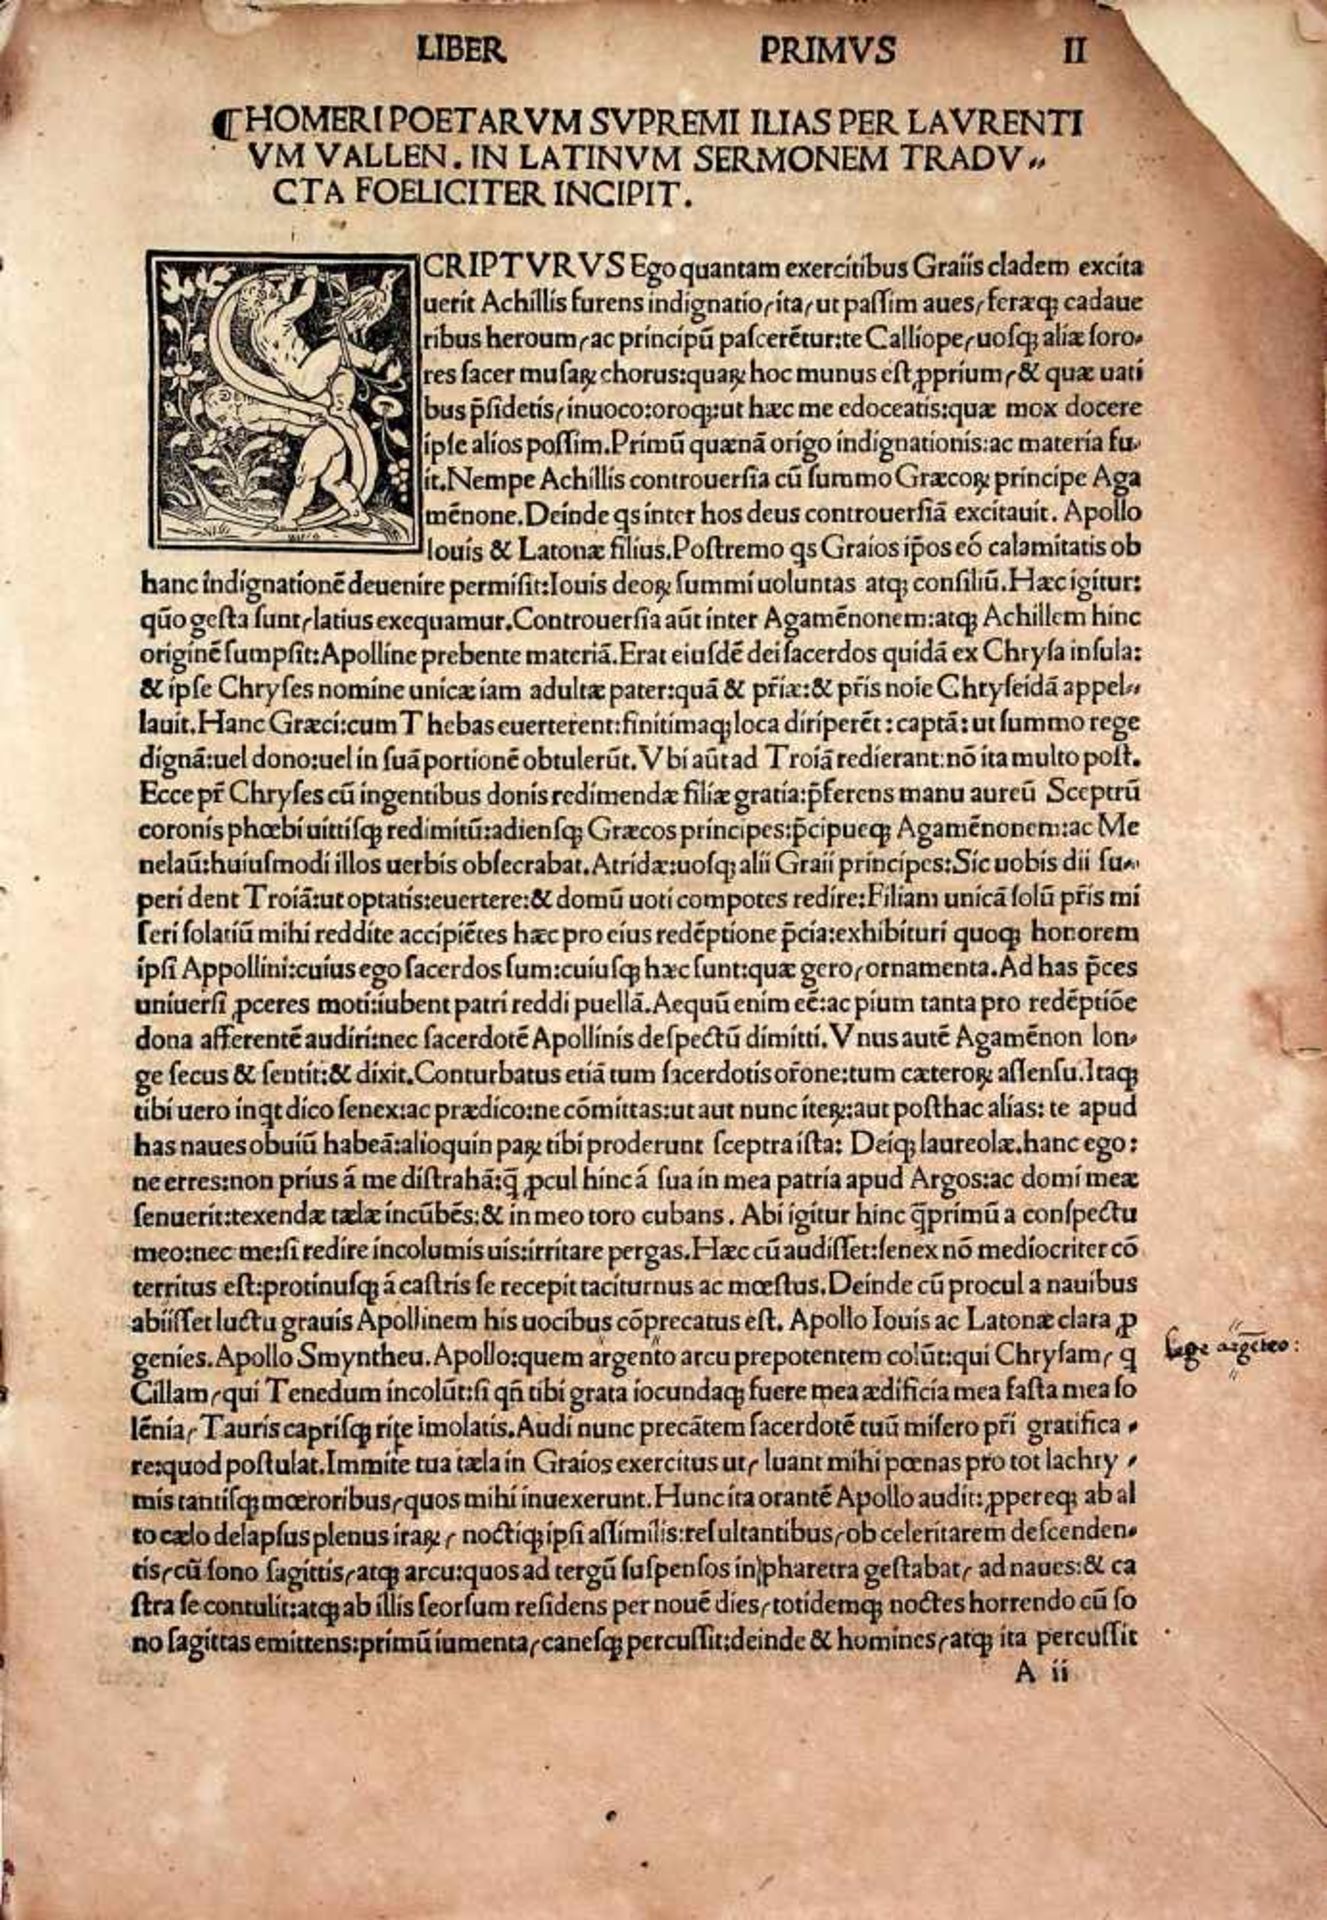 LIBER PRIMVS II
⸿HOMERI POETARVM SVPREMI ILIAS PER LAVRENTI
VM VALLEN. IN LATINVM SERMONEM TRADV〃
CTA FOELICITER INCIPIT.
SCRIPTVRVS Ego quantam exercitibus Graiis cladem excita
uerit Achillis furens indignatio/ ita/ ut paſſim aues/ feræq; cadaue
ribus heroum/ ac principū paſcerētur:te Calliope/ uoſq; aliæ ſoro-
res ſacer muſaꝝ chorus:quaꝝ hoc munus eſt ꝓprium/ & quæ uati
bus p̄ſidetis/ inuoco:oroq;:ut hæc me edoceatis:quæ mox docere
ipſe alios poſſim.Primū quænā origo indignationis:ac materia fu-
it.Nempe Achillis controuerſia cū ſummo Græcoꝝ principe Aga
mēnone.Deinde qs inter hos deus controuerſiā excitauit. Apollo
Iouis & Latonæ filius.Poſtremo qs Graios ip̄os eó calamitatis ob
hanc indignationē deuenire permiſit:Iouis deoꝝ ſummi uoluntas atq; conſiliū.Hæc igitur:
quō geſta ſunt/ latius exequamur.Controuerſia aūt inter Agamēnonem:atq; Achillem hinc
originē ſumpſit:Apolline prebente materiā.Erat eiuſdē dei ſacerdos quidā ex Chryſa inſula:
& ipſe Chryſes nomine unicæ iam adultæ pater:quā & pr̄iæ:& pr̄is noie Chryſeidā appel〃
lauit.Hanc Græci:cum Thebas euerterent:finitimaq; loca diriperēt:captā:ut ſummo rege
dignā:uel dono:uel in ſuā portionē obtulerūt.Vbi aūt ad Troiā redierant:nō ita multo poſt.
Ecce pr̄ Chryſes cū ingentibus donis redimendæ filiæ gratia:p̄ferens manu aureū Sceptrū
coronis phœbi uittiſq; redimitū:adienſq; Græcos principes:p̄cipueq; Agamēnonem:ac Me
nelaū:huiuſmodi illos uerbis obſecrabat.Atridæ:uoſq; alii Graii principes:Sic uobis dii ſu-
peri dent Troiā:ut optatis:euertere:& domū uoti compotes redire:Filiam unicā ſolū pr̄is mi
ſeri ſolatiū mihi reddite accipiētes hæc pro eius redēptione p̄cia:exhibituri quoq; honorem
ipſi Appollini:cuius ego ſacerdos ſum:cuiuſq; hæc ſunt:quæ gero/ ornamenta.Ad has p̄ces
uniuerſi ꝓceres moti:iubent patri reddi puellā.Aequū enim eē:ac pium tanta pro redēptiōe
dona afferentē audiri:nec ſacerdotē Apollinis deſpectū dimitti.Vnus autē Agamēnon lon-
ge ſecus & ſentit:& dixit.Conturbatus etiā tum ſacerdotis or̄one:tum cæteroꝝ aſſenſu.Itaq;
tibi uero inqt dico ſenex:ac prædico:ne cōmittas:ut aut nunc iteꝝ:aut poſthac alias: te apud
has naues obuiū habeā:alioquin paꝝ tibi proderunt ſceptra iſta: Deiq; laureolæ.hanc ego:
ne erres:non prius á me diſtrahā:q̄ ꝓcul hinc á ſua in mea patria apud Argos:ac domi meæ
ſenuerit:texendæ tælæ incūbēs:& in meo toro cubans. Abi igitur hinc q̄primū a conſpectu
meo:nec me:ſi redire incolumis uis:irritare pergas.Hæc cū audiſſet:ſenex nō mediocriter cō
territus eſt:protinuſq; á caſtris ſe recepit taciturnus ac mœſtus.Deinde cū procul a nauibus
abiiſſet luctu grauis Apollinem his uocibus cōprecatus eſt. Apollo Iouis ac Latonæ clara ꝓ
genies.Apollo Smyntheu.Apollo:quem argento arcu prepotentem colūt:qui Chryſam/ q
lege argēteo:
Cillam/ qui Tenedum incolūt:ſi qn̄ tibi grata iocundaq; fuere mea ædificia mea faſta mea ſo
lēnia/ Tauris capriſq; rite imolatis.Audi nunc precātem ſacerdotē tuū miſero pr̄i gratifica -
re:quod poſtulat.Immite tua tæla in Graios exercitus ut/ luant mihi pœnas pro tot lachry -
mis tantiſq; mœroribus/ quos mihi inuexerunt.Hunc ita orantē Apollo audit:ꝓpereq; ab al
to cælo delapſus plenus iraꝝ/ noctiq; ipſi aſſimilis:reſultantibus/ ob celeritatem deſcenden-
tis/ cū ſono ſagittis/ atq; arcu:quos ad tergū ſuſpenſos in pharetra geſtabat/ ad naues:& ca
ſtra ſe contulit:atq; ab illis ſeorſum reſidens per nouē dies/ totidemq; noctes horrendo cū ſo
no ſagittas emittens:primū iumenta/ caneſq; percuſſit:deinde & homines/ atq; ita percuſſit
A ii